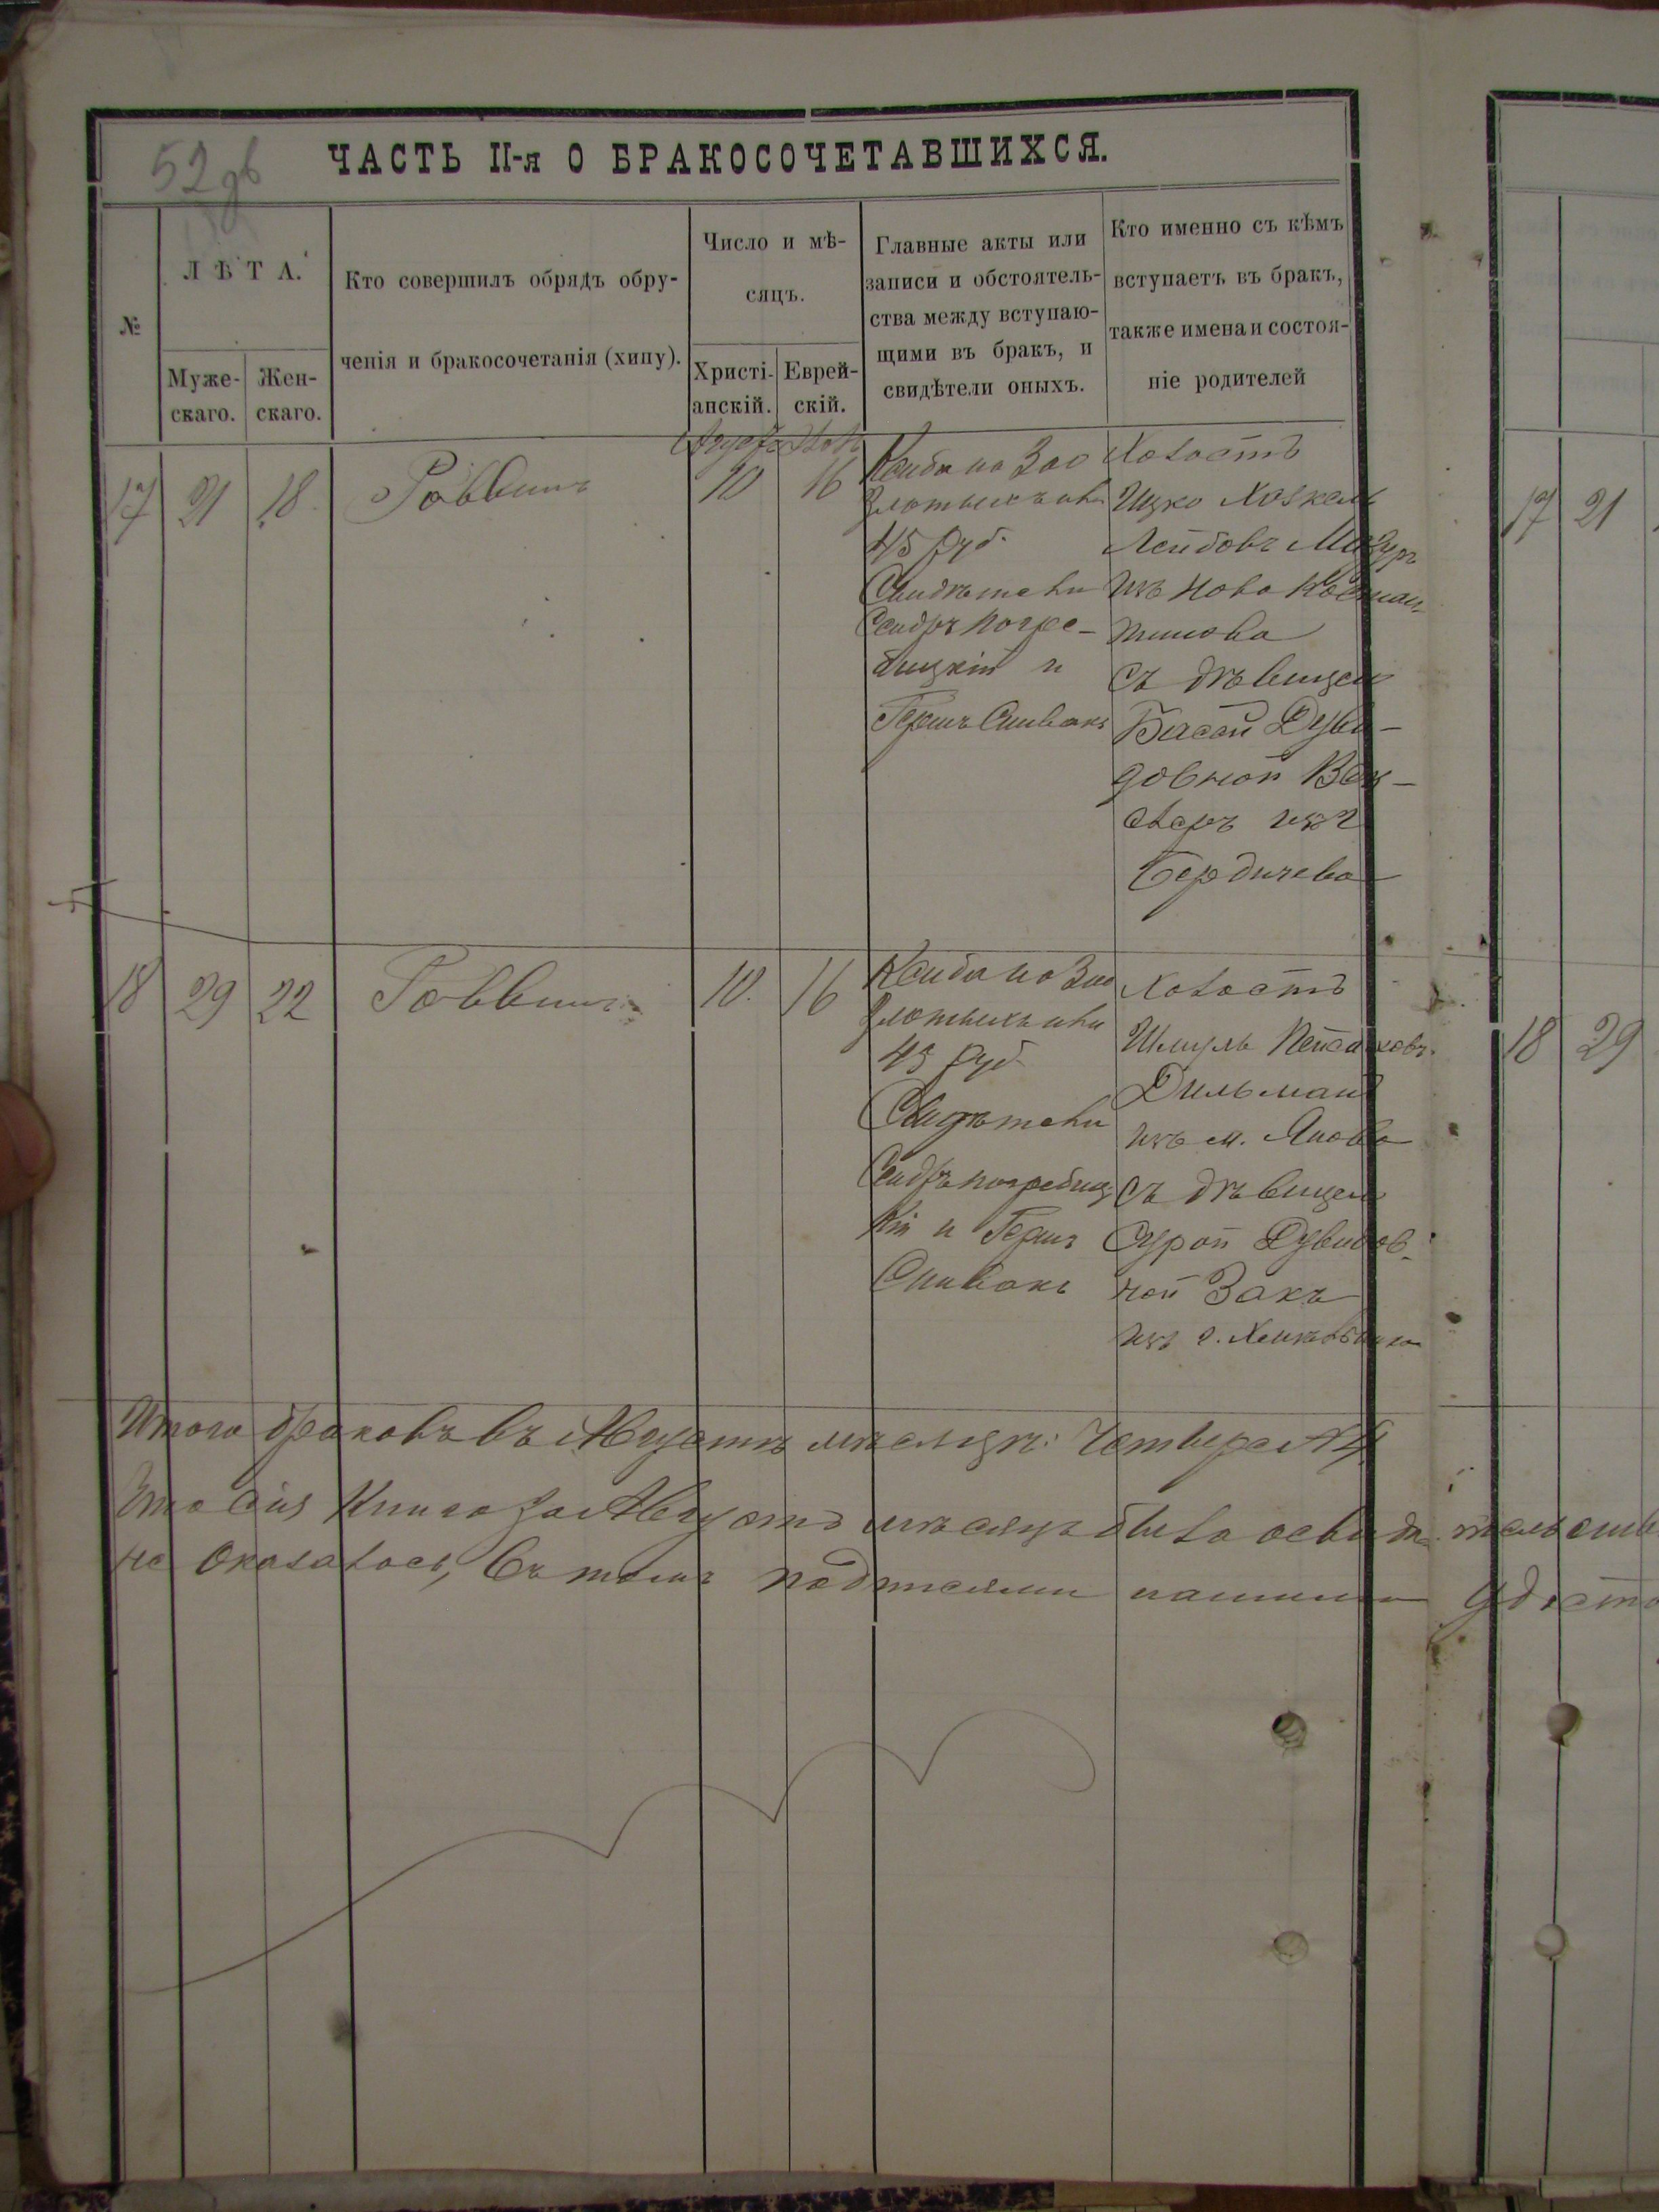 52 об
ЧАСТЬ II-я О БРАКОСОЧЕТАВШИХСЯ.
№
ЛѢТА.
Муже-
скаго.
Жен-
скаго.
Кто совершилъ обрядъ обру-
ченія и бракосочетанія (хипу).
Число и мѣ-
сяцъ.
Христі-
анскій.
Еврей-
скій.
Главные акты или
записи и обстоятель-
ства между вступаю-
щими въ бракъ, и
свидѣтели оныхъ.
Кто именно съ кѣмъ
вступаетъ въ бракъ,
также имена и состоя-
ніе родителей
17 21 18 Раввинъ
10 16
на 300
злотыхъ или
45 руб.
Свидѣтели
Сендръ Погре-
бицкій и
Гершъ Спивакъ
Холостъ
Ицко Хаскель
Лейбовъ Мазуръ
изъ Ново Констан-
тинова
съ дѣвицей
Басей Дуви-
довной Век-
слеръ изъ г
Бердичева
18 29 22 Раввинъ
10. 16
на 300
злотыхъ или
45 руб
Свидѣтели
Сендръ Погребиц
кій и Гершъ
Спивакъ
Холостъ
Шмуль Пейсаховъ
Дильманъ
изъ м. Янова
съ дѣвицей
Сурой Дувидов-
ной Закъ
изъ г. Хмельника
Итого браковъ въ Августѣ мѣсяцѣ: Четыре №4
Что сія Книга за Августъ мѣсяцъ была освидѣ тельств
не оказалось, въ томъ подписями нашими удосто
17 21
18 29